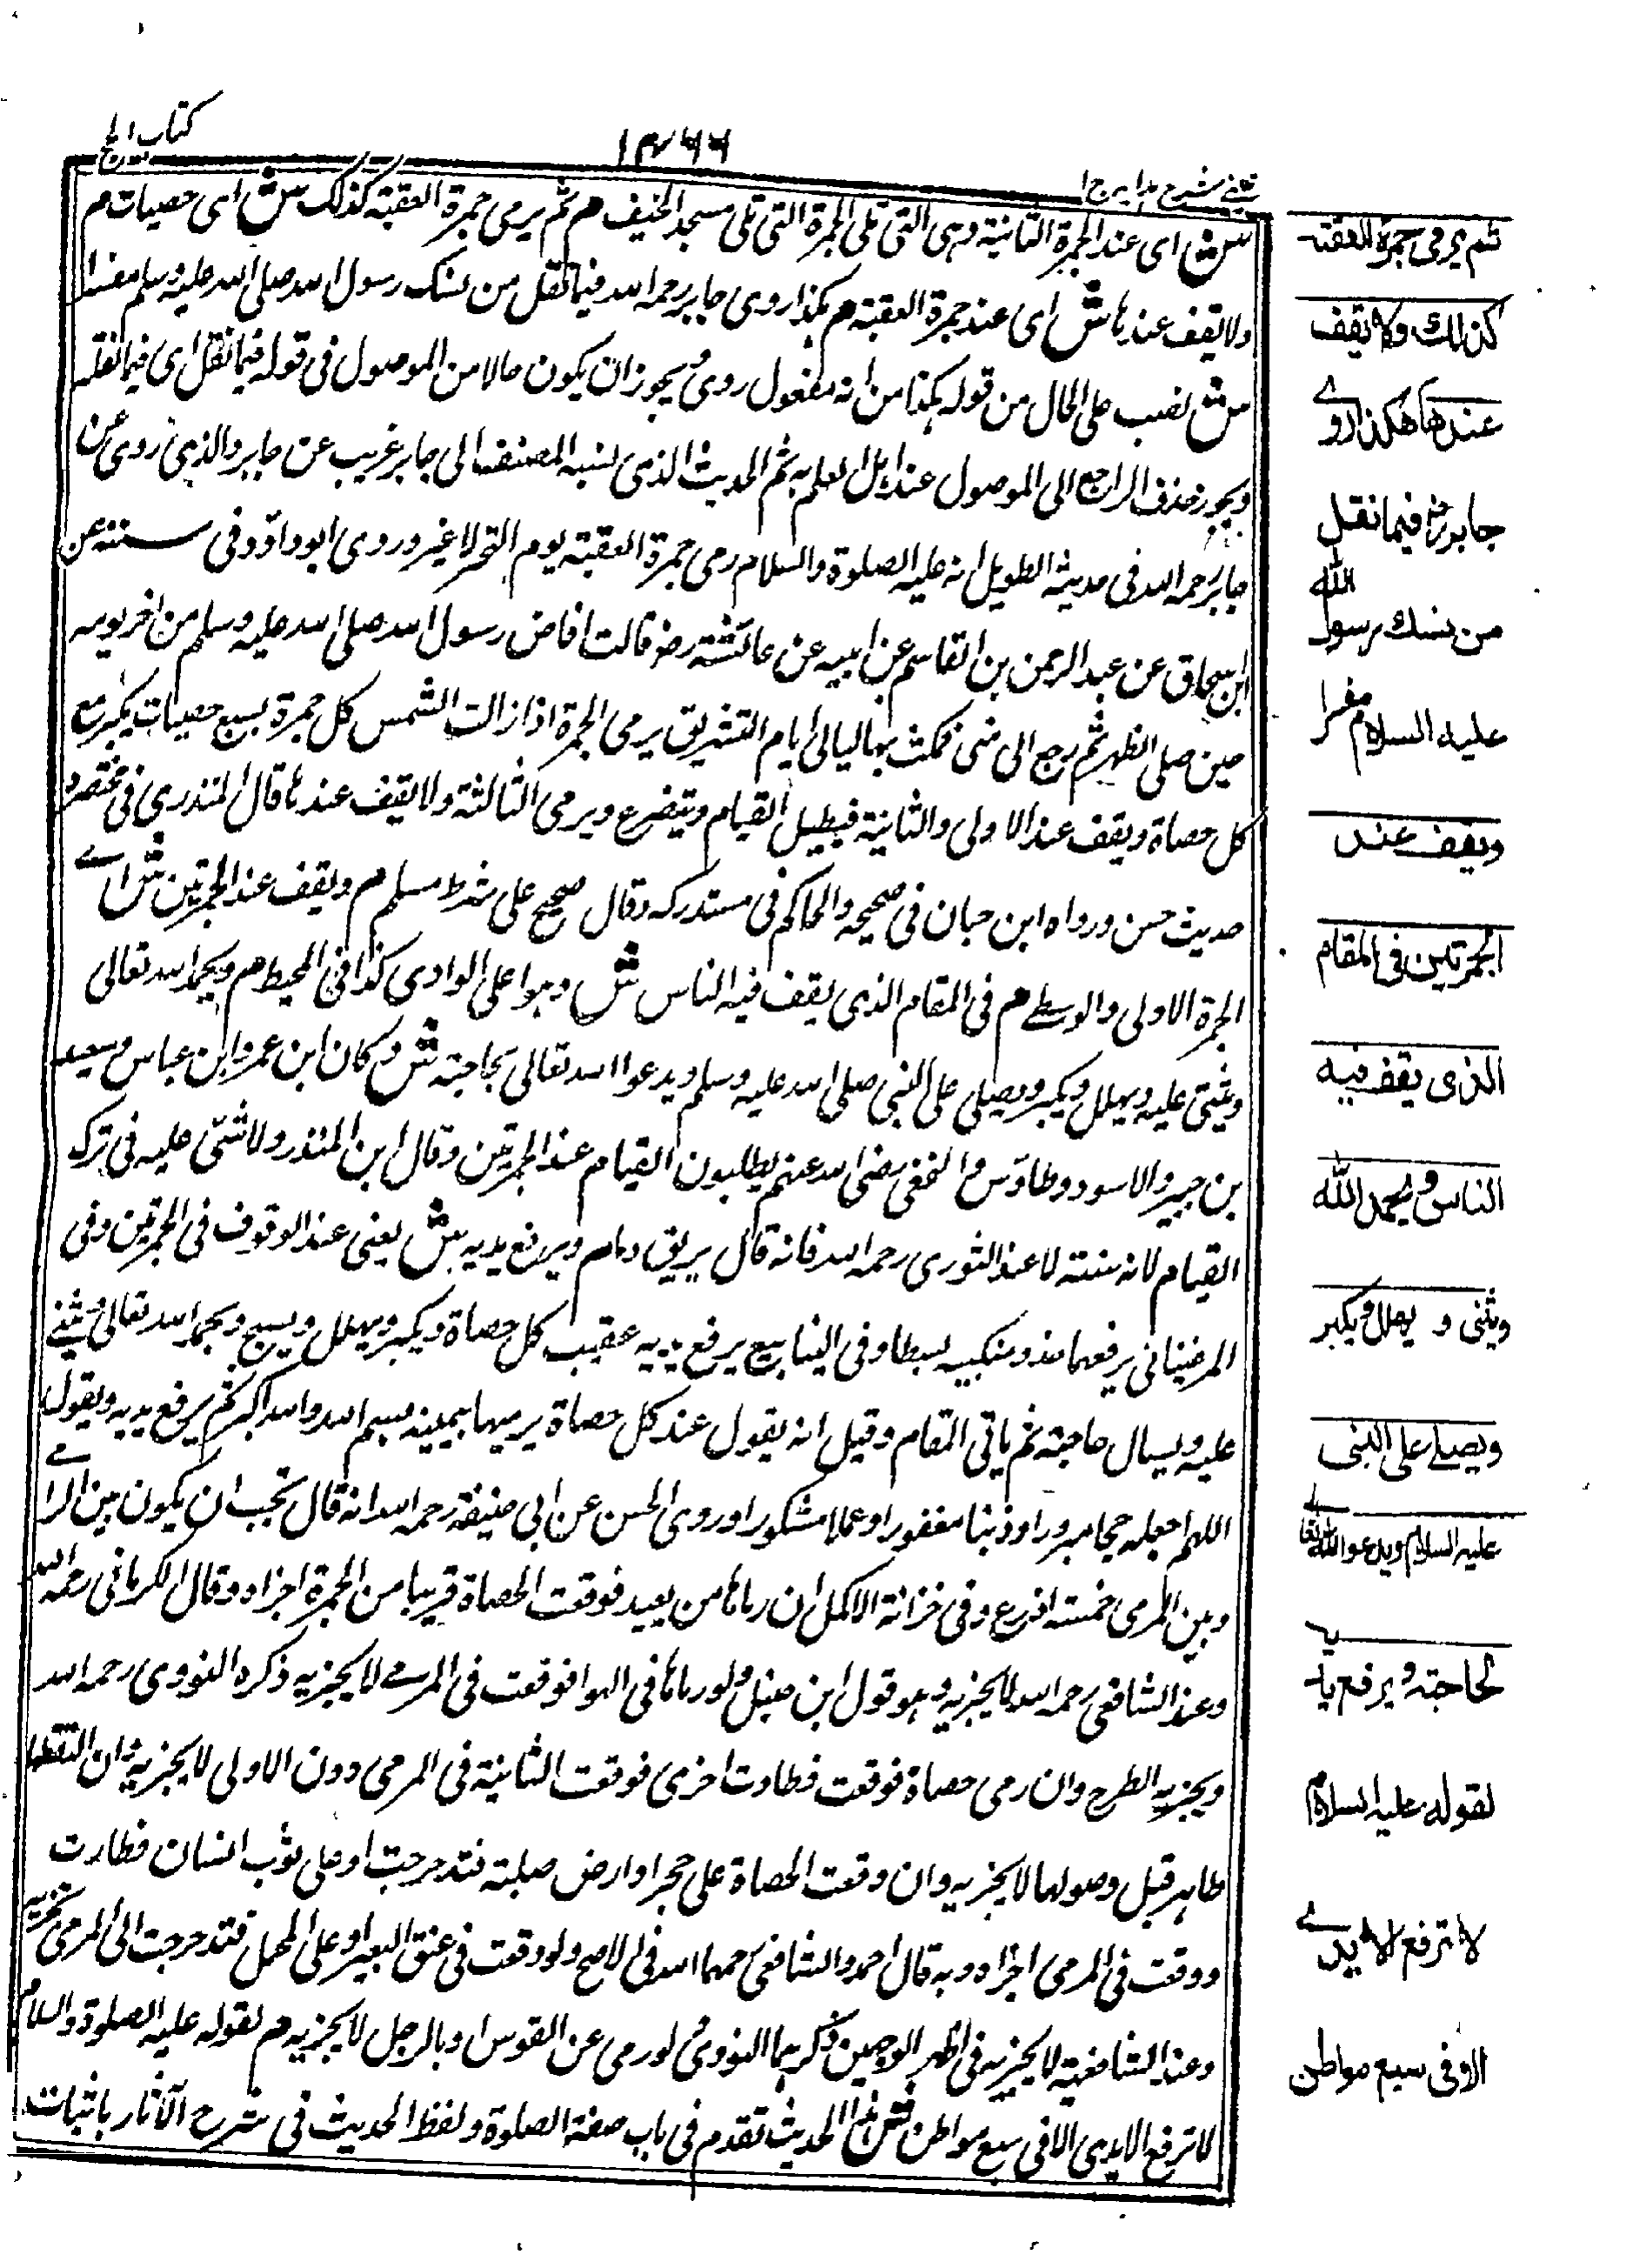 كتاب الحج
١٤٦٦
عيني شرح هدايه ج ا
ش اى عند الجمرة الثانية وهى التى تلى الجمرة التى تلى مسجد الخيف م ثم يرمى جمرة العقبة كذلك ش اى حصيات م
ولا يقف عندها ش اى عند جمرة العقبة م هكذا روى جابر رحمه الله فيما نقل من نسك رسول الله صلى الله عليه وسلم مفسرا
ش نصب على الحال من قوله هكذا من انه مفعول روى ويجوز ان يكون حالا من الموصول فى قوله فيما نقل اى فيما نقله
ويجوز حذف الراجع الى الموصول عند اهل العلم به ثم الحديث الذى نسبه المصنف الى جابر غريب عن جابر والذى روى عن
جابر رحمه الله فى حديثه الطويل انه عليه الصلوة والسلام رمى جمرة العقبة يوم النحر لا غير وروى ابو داؤد فى سننه عن
ابن اسحاق عن عبد الرحمن بن القاسم عن ابيه عن عائشة رض قالت افاض رسول الله صلى الله عليه وسلم من اخر يومه
حين صلى الظهر ثم رجع الى منى فمكث بها ليالى ايام التشريق يرمى الجمرة اذا زالت الشمس كل جمرة بسبع حصيات يكبر مع
كل حصاة ويقف عند الاولى والثانية فيطيل القيام ويتضرع ويرمى الثالثة ولا يقف عندها قال المنذرى فى مختصره
حديث حسن ورواه ابن حبان فى صحيحه والحاكم فى مستدركه وقال صحيح على شرط مسلم م ويقف عند الجمرتين ش اے
الجمرة الاولى والوسطے م فى المقام الذى يقف فيه الناس ش وهو اعلى الوادى كذا فى المحيط م ويحمد الله تعالى
ويثنى عليه ويهلل ويكبر ويصلى على النبى صلى الله عليه وسلم ويدعوا الله تعالى بحاجته ش وكان ابن عمر وابن عباس وسعيد
بن جبير والاسود وطاؤس والنخعى رضى الله عنهم يطلبون القيام عند الجمرتين وقال ابن المنذر ولا شئ عليه فى ترك
القيام لانه سنته لا عند الثورى رحمه الله فانه قال يريق دما م ويرفع يديه ش يعنى عند الوقوف فى الجمرتين وفى
المرغينانى يرفعهما حذو منكبيه بسطا وفى الينابيع يرفع يديه عقيب كل حصاة ويكبر ويهلل ويسبح ويحمد الله تعالى ويثنے
عليه ويسال حاجته ثم ياتى المقام وقيل انه يقول عند كل حصاة يرميها بيمينه بسم الله والله اكبر ثم يرفع يديه ويقول
اللهم اجعله حجا مبرورا وذنبا مغفورا وعملا مشكورا وروى الحسن عن ابى حنيفة رحمه الله انه قال يجب ان يكون بين الرامے
وبين المرمى خمسة اذرع وفى خزانة الاكمل ان رماها من بعيد فوقعت الحصاة قريبا من الجمرة اجزاه وقال الكرمانى رحمه الله
وعند الشافعى رحمه الله لا يجزيه وهو قول ابن حنبل ولو رماها فى الهوا فوقعت فى المرمے لا يجزيه ذكره النووى رحمه الله
ويجزيه الطرح وان رمى حصاة فوقعت فطارت اخرى فوقعت الثانية فى المرمى دون الاولى لا يجزيه وان التقطها
طاهر قبل وصولها لا يجزيه وان وقعت الحصاة على حجر او ارض صلبة فتدحرجت او على ثوب انسان فطارت
ووقعت فى المرمى اجزاه وبه قال احمد والشافعى رحمهما الله فى الاصح ولو وقعت فى عنق البعير او على المحمل فتدحرجت الى المرمى تجزيه
وعند الشافعية لا يجزيه فى اظهر الوجهين ذكرهما النووى ولو رمى عن القوس او بالرجل لا يجزيه م لقوله عليه الصلوة والسلام
لا ترفع الايدى الا فى سبع مواطن ش هذا الحديث تقدم فى باب صفة الصلوة ولفظ الحديث فى شرح الآثار باثبات
ثم يرمى جمرة العقبة
كذلك ولا يقف
عندها هكذا روے
جابر رض فيما نقل
من نسك رسول الله
عليه السلام مفسرا
ويقف عند
الجمرتين فى المقام
الذى يقف فيه
الناس ويحمد الله
ويثنى و يهلل ويكبر
ويصلے على النبى
عليه السلام ويدعو الله تعالے
لحاجته ويرفع يديه
لقوله عليه السلام
لا ترفع الايدے
الا فى سبع مواطن